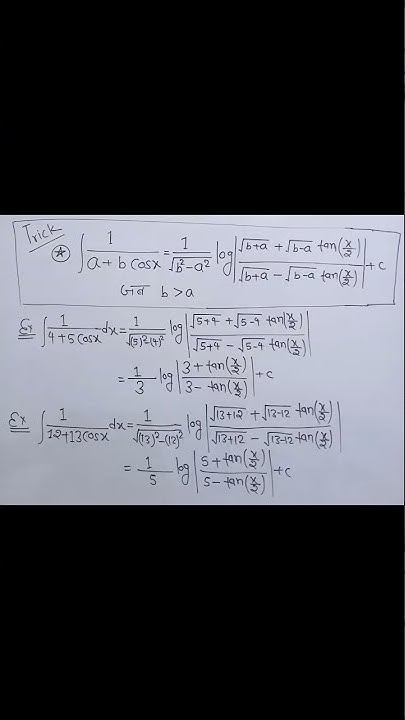 Trick
∫ 1/(a + b cosx) = 1/√(b²-a²) log |(√(b+a) + √(b-a) tan(x/2))/(√(b+a) - √(b-a) tan(x/2))| + c
जब b > a
Ex ∫ 1/(4+5cosx) dx = 1/√((5)²-(4)²) log |(√(5+4) + √(5-4) tan(x/2))/(√(5+4) - √(5-4) tan(x/2))|
= 1/3 log |(3 + tan(x/2))/(3 - tan(x/2))| + c
Ex ∫ 1/(12+13cosx) dx = 1/√((13)²-(12)²) log |(√(13+12) + √(13-12) tan(x/2))/(√(13+12) - √(13-12) tan(x/2))|
= 1/5 log |(5 + tan(x/2))/(5 - tan(x/2))| + c